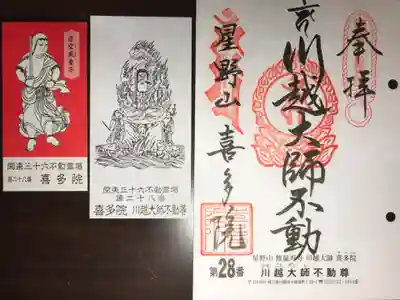 関東三十六不動霊場
第二十八番 喜多院
関東三十六不動霊場
第二十八番
喜多院 川越大師不動尊
奉拝
川越大師不動
星野山
喜多院
星野山 無量寿寺 川越大師 喜多院
第28番
川越大師不動尊